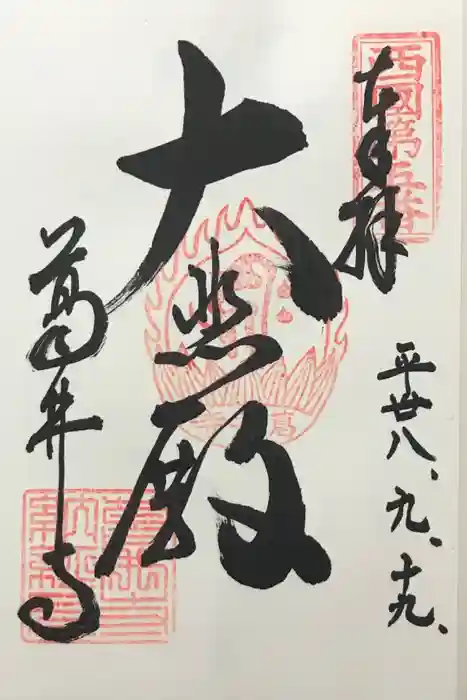 西國第五番
奉拝
平廿八、九、十九、
大悲殿
葛井寺